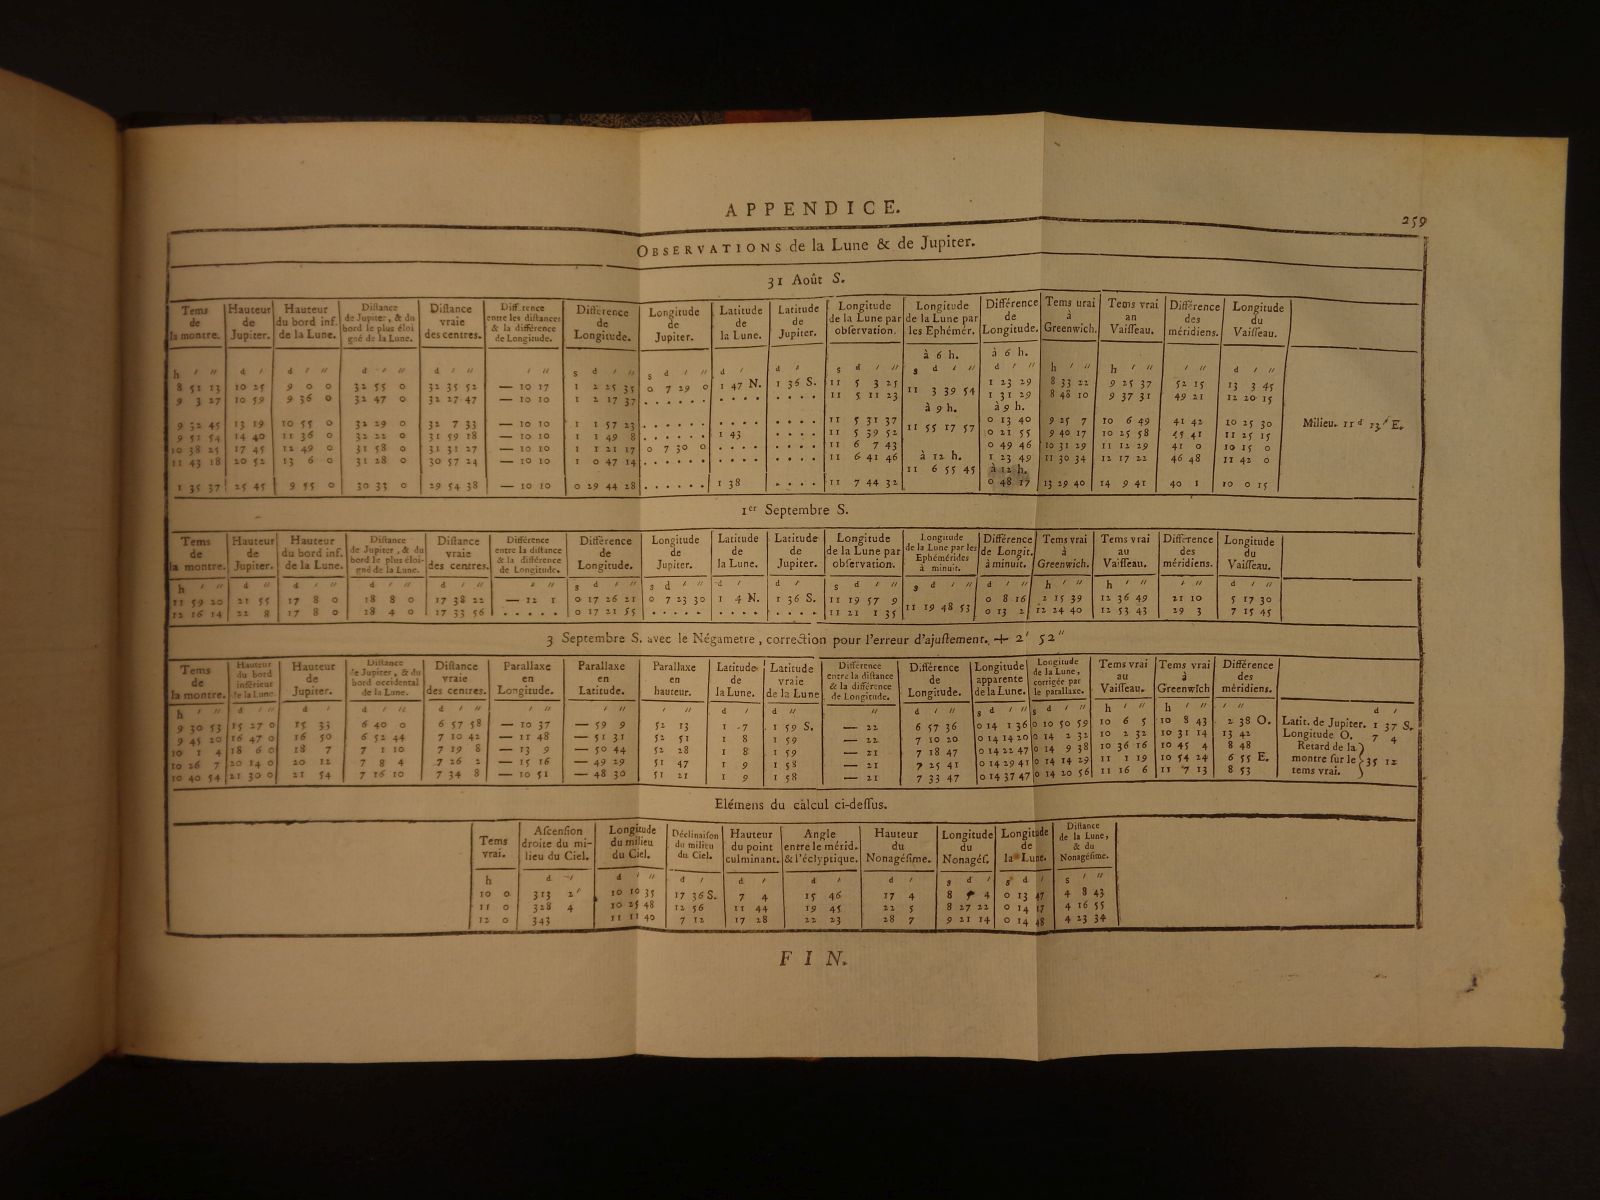 APPENDICE.
259
OBSERVATIONS de la Lune & de Jupiter.
31 Août S.
Tems de la montre. | Hauteur de Jupiter. | Hauteur du bord inf. de la Lune. | Distance de Jupiter, & du bord le plus éloigné de la Lune. | Distance vraie des centres. | Différence entre les distances & la différence de Longitude. | Différence de Longitude. | Longitude de Jupiter. | Latitude de la Lune. | Latitude de Jupiter. | Longitude de la Lune par observation. | Longitude de la Lune par les Ephémér. | Différence de Longitude. | Tems urai à Greenwich. | Tems vrai an Vaisseau. | Différence des méridiens. | Longitude du Vaisseau.
à 6 h. | à 6 h.
8 51 13 | 10 25 | 9 0 0 | 32 55 0 | 32 35 52 | — 10 17 | 1 2 25 35 | 0 7 29 0 | 1 47 N. | 1 36 S. | 11 5 3 25 | 11 3 39 54 | 1 23 29 | 8 33 22 | 9 25 37 | 52 15 | 13 3 45
9 3 27 | 10 59 | 9 36 0 | 32 47 0 | 32 27 47 | — 10 10 | 1 2 17 37 | . . . . . . | . . . . | . . . . | 11 5 11 23 | 1 31 29 | 8 48 10 | 9 37 31 | 49 21 | 12 20 15
à 9 h. | à 9 h.
9 32 45 | 13 19 | 10 55 0 | 32 29 0 | 32 7 33 | — 10 10 | 1 1 57 23 | . . . . . . | . . . . | . . . . | 11 5 31 37 | 11 55 17 57 | 0 13 40 | 9 25 7 | 10 6 49 | 41 42 | 10 25 30
9 51 54 | 14 40 | 11 36 0 | 32 22 0 | 31 59 18 | — 10 10 | 1 1 49 8 | . . . . . . | 1 43 | . . . . | 11 5 39 52 | 0 21 55 | 9 40 17 | 10 25 58 | 45 41 | 11 25 15
10 38 25 | 17 45 | 12 49 0 | 31 58 0 | 31 31 27 | — 10 10 | 1 1 21 17 | 0 7 30 0 | . . . . | . . . . | 11 6 7 43 | 0 49 46 | 10 31 29 | 11 12 29 | 41 0 | 10 15 0
11 43 18 | 20 52 | 13 6 0 | 31 28 0 | 30 57 24 | — 10 10 | 1 0 47 14 | . . . . . . | . . . . | . . . . | 11 6 41 46 | à 12 h. | 1 23 49 | 11 30 34 | 12 17 22 | 46 48 | 11 42 0
11 6 55 45 | à 12 h.
1 35 37 | 25 45 | 9 55 0 | 30 33 0 | 29 54 38 | — 10 10 | 0 29 44 28 | . . . . . . | 1 38 | . . . . | 11 7 44 32 | 0 48 17 | 13 29 40 | 14 9 41 | 40 1 | 10 0 15
Milieu. 11 d 13′ E.
1er Septembre S.
Tems de la montre. | Hauteur de Jupiter. | Hauteur du bord inf. de la Lune. | Distance de Jupiter, & du bord le plus éloigné de la Lune. | Distance vraie des centres. | Différence entre la distance & la différence de Longitude. | Différence de Longitude. | Longitude de Jupiter. | Latitude de la Lune. | Latitude de Jupiter. | Longitude de la Lune par observation. | Longitude de la Lune par les Ephémérides à minuit. | Différence de Longit. à minuit. | Tems vrai à Greenwich. | Tems vrai au Vaisseau. | Différence des méridiens. | Longitude du Vaisseau.
11 59 20 | 21 55 | 17 8 0 | 18 8 0 | 17 38 22 | — 12 1 | 0 17 26 21 | 0 7 23 30 | 1 4 N. | 1 36 S. | 11 19 57 9 | 11 19 48 53 | 0 8 16 | 2 15 39 | 12 36 49 | 21 10 | 5 17 30
12 16 14 | 22 8 | 17 8 0 | 18 4 0 | 17 33 56 | . . . . . | 0 17 21 55 | . . . . . | . . . . | . . . . | 11 21 1 35 | 0 13 2 | 12 24 40 | 12 53 43 | 29 3 | 7 15 45
3 Septembre S. avec le Négametre, correction pour l'erreur d'ajustement. + 2′ 52″
Tems de la montre. | Hauteur du bord inférieur de la Lune. | Hauteur de Jupiter. | Distance de Jupiter, & du bord occidental de la Lune. | Distance vraie des centres. | Parallaxe en Longitude. | Parallaxe en Latitude. | Parallaxe en hauteur. | Latitude de la Lune. | Latitude vraie de la Lune | Différence entre la distance & la différence de Longitude. | Différence de Longitude. | Longitude apparente de la Lune. | Longitude de la Lune, corrigée par le parallaxe. | Tems vrai au Vaisseau. | Tems vrai à Greenwich | Différence des méridiens.
9 30 53 | 15 27 0 | 15 33 | 6 40 0 | 6 57 58 | — 10 37 | — 59 9 | 52 13 | 1 7 | 1 59 S. | — 22 | 6 57 36 | 0 14 1 36 | 0 10 50 59 | 10 6 5 | 10 8 43 | 2 38 O.
9 45 20 | 16 47 0 | 16 50 | 6 52 44 | 7 10 42 | — 11 48 | — 51 31 | 52 51 | 1 8 | 1 59 | — 22 | 7 10 20 | 0 14 14 20 | 0 14 2 32 | 10 2 32 | 10 31 14 | 13 42
10 1 4 | 18 6 0 | 18 7 | 7 1 10 | 7 19 8 | — 13 9 | — 50 44 | 52 28 | 1 8 | 1 59 | — 21 | 7 18 47 | 0 14 22 47 | 0 14 9 38 | 10 36 16 | 10 45 4 | 8 48
10 26 7 | 20 14 0 | 20 12 | 7 8 4 | 7 26 2 | — 15 16 | — 49 29 | 51 47 | 1 9 | 1 58 | — 21 | 7 25 41 | 0 14 29 41 | 0 14 14 29 | 11 1 19 | 10 54 24 | 6 55 E.
10 40 54 | 21 30 0 | 21 54 | 7 16 10 | 7 34 8 | — 10 51 | — 48 30 | 51 21 | 1 9 | 1 58 | — 21 | 7 33 47 | 0 14 37 47 | 0 14 20 56 | 11 16 6 | 11 7 13 | 8 53
Latit. de Jupiter. 1 37 S.
Longitude O. 7 4
Retard de la montre sur le tems vrai. } 35 12
Elémens du calcul ci-dessus.
Tems vrai. | Ascension droite du milieu du Ciel. | Longitude du milieu du Ciel. | Déclinaison du milieu du Ciel. | Hauteur du point culminant. | Angle entre le mérid. & l'éclyptique. | Hauteur du Nonagésime. | Longitude du Nonagés. | Longitude de la Lune. | Distance de la Lune, & du Nonagésime.
10 0 | 313 2′ | 10 10 35 | 17 36 S. | 7 4 | 15 46 | 17 4 | 8 4 | 0 13 47 | 4 8 43
11 0 | 328 4 | 10 25 48 | 12 56 | 11 44 | 19 45 | 22 5 | 8 27 22 | 0 14 17 | 4 16 55
12 0 | 343 | 11 11 40 | 7 12 | 17 28 | 22 23 | 28 7 | 9 21 14 | 0 14 48 | 4 23 34
FIN.